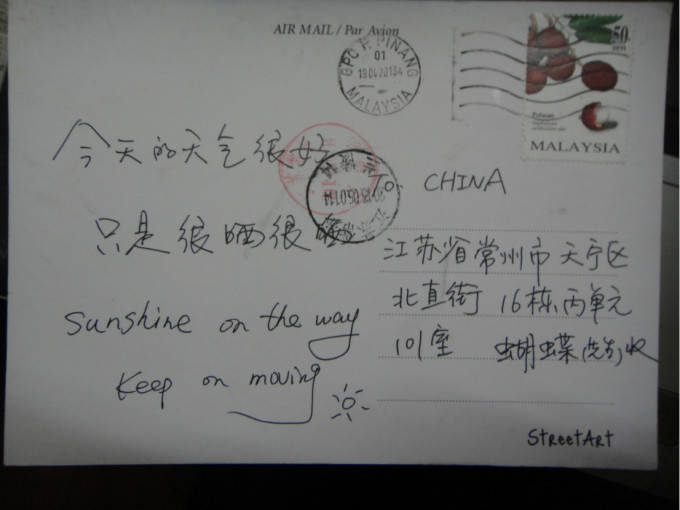 AIR MAIL / Par Avion
GPO P. PINANG
01
MALAYSIA
50
sen
Pulasan
MALAYSIA
今天的天气很好
只是很晒很
Sunshine on the way
Keep on moving
To: CHINA
江苏省常州市天宁区
北直街 16栋丙单元
101室 蝴蝶(先生)收
StreetArt